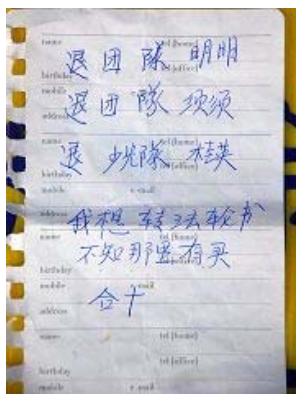 name tel (home)
退团队 明明
birthday tel (office)
mobile
退团队 须须
address
name tel (home)
退 少先队 桂英
birthday tel (office)
mobile e-mail
address
我想 转法轮书
name tel (home)
不知那里有买
birthday tel (office)
mobile e-mail
合十
address
name tel (home)
birthday tel (office)
mobile e-mail